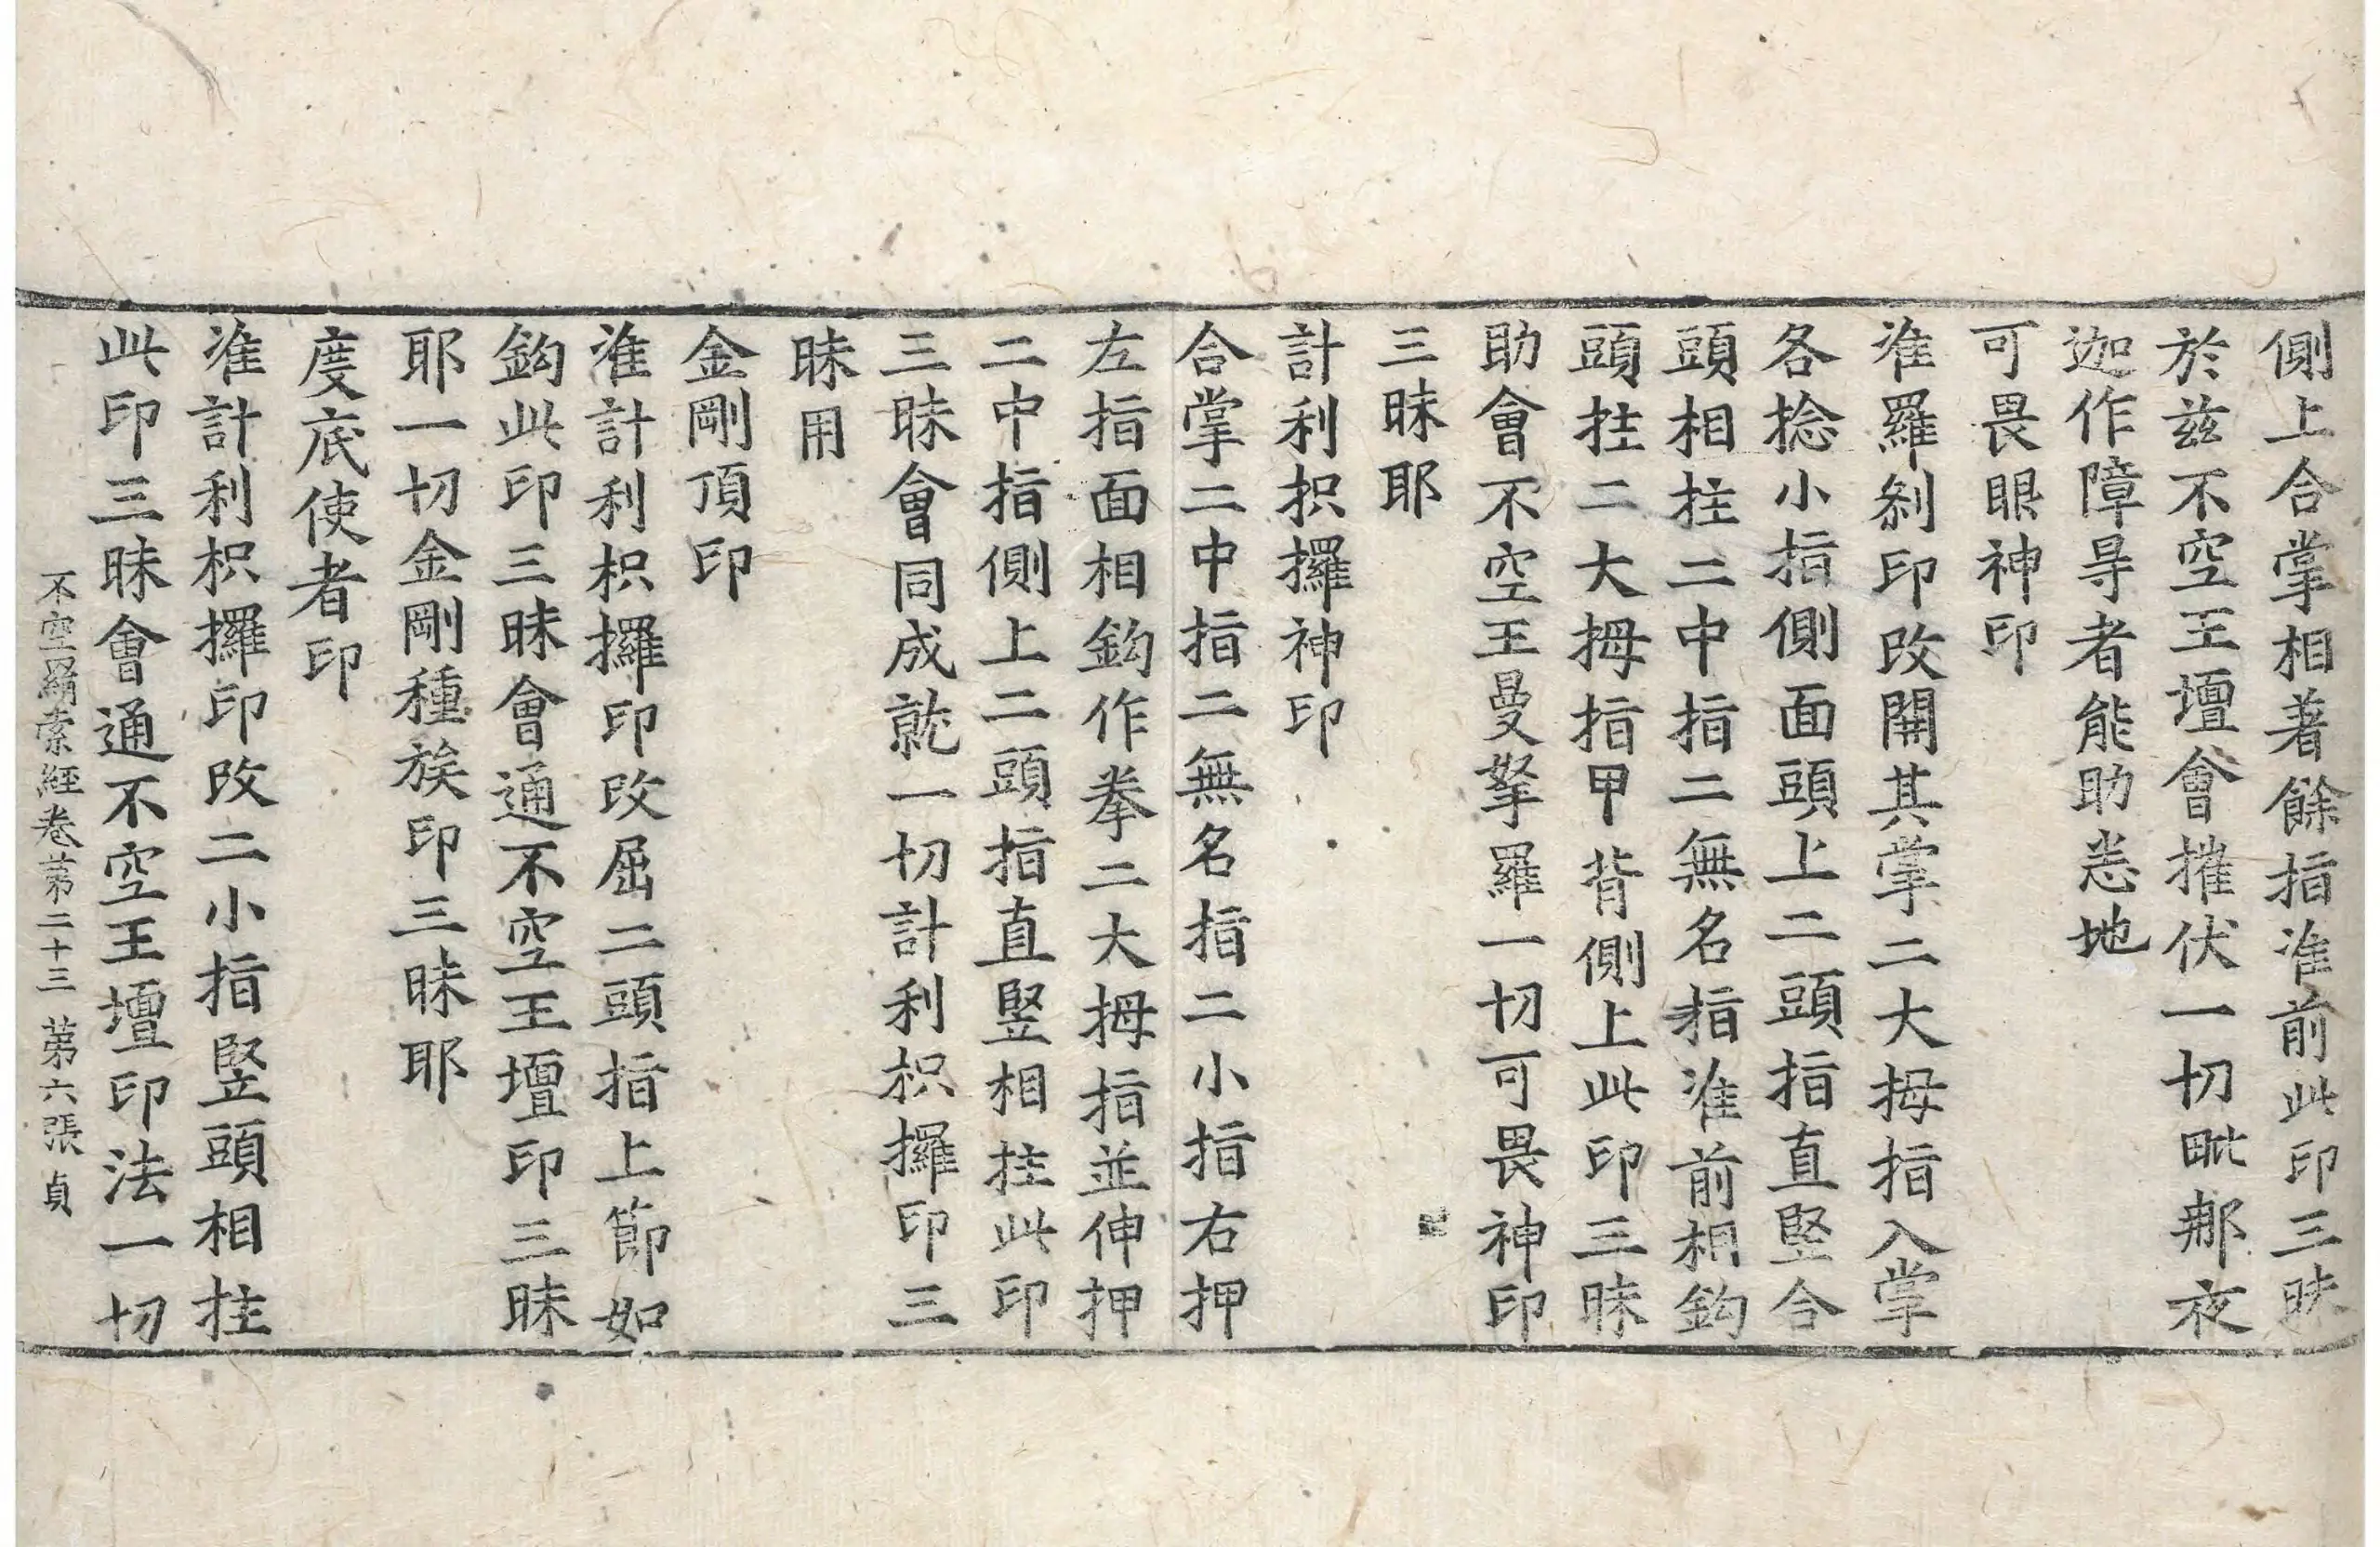 側上合掌相著餘指准前此印三昧
於茲不空王壇會摧伏一切毗那夜
迦作障㝵者能助悉地
可畏眼神印
准羅剎印改開其掌二大拇指入掌
各捻小指側面頭上二頭指直竪合
頭相拄二中指二無名指准前相鈎
頭拄二大拇指甲背側上此印三昧
助會不空王曼拏羅一切可畏神印
三昧耶
計利抧攞神印
合掌二中指二無名指二小指右押
左指面相鈎作拳二大拇指並伸押
二中指側上二頭指直竪相拄此印
三昧會同成就一切計利枳攞印三
昧用
金剛頂印
准計利枳攞印改屈二頭指上節如
鈎此印三昧會通不空王壇印三昧
耶一切金剛種族印三昧耶
度底使者印
准計利枳攞印改二小指竪頭相拄
此印三昧會通不空王壇印法一切
不空羂索經卷第二十三 第六張 貞